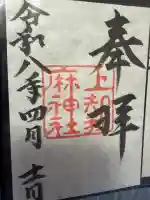 奉拝
上知我
麻神社
令和八年四月十一日